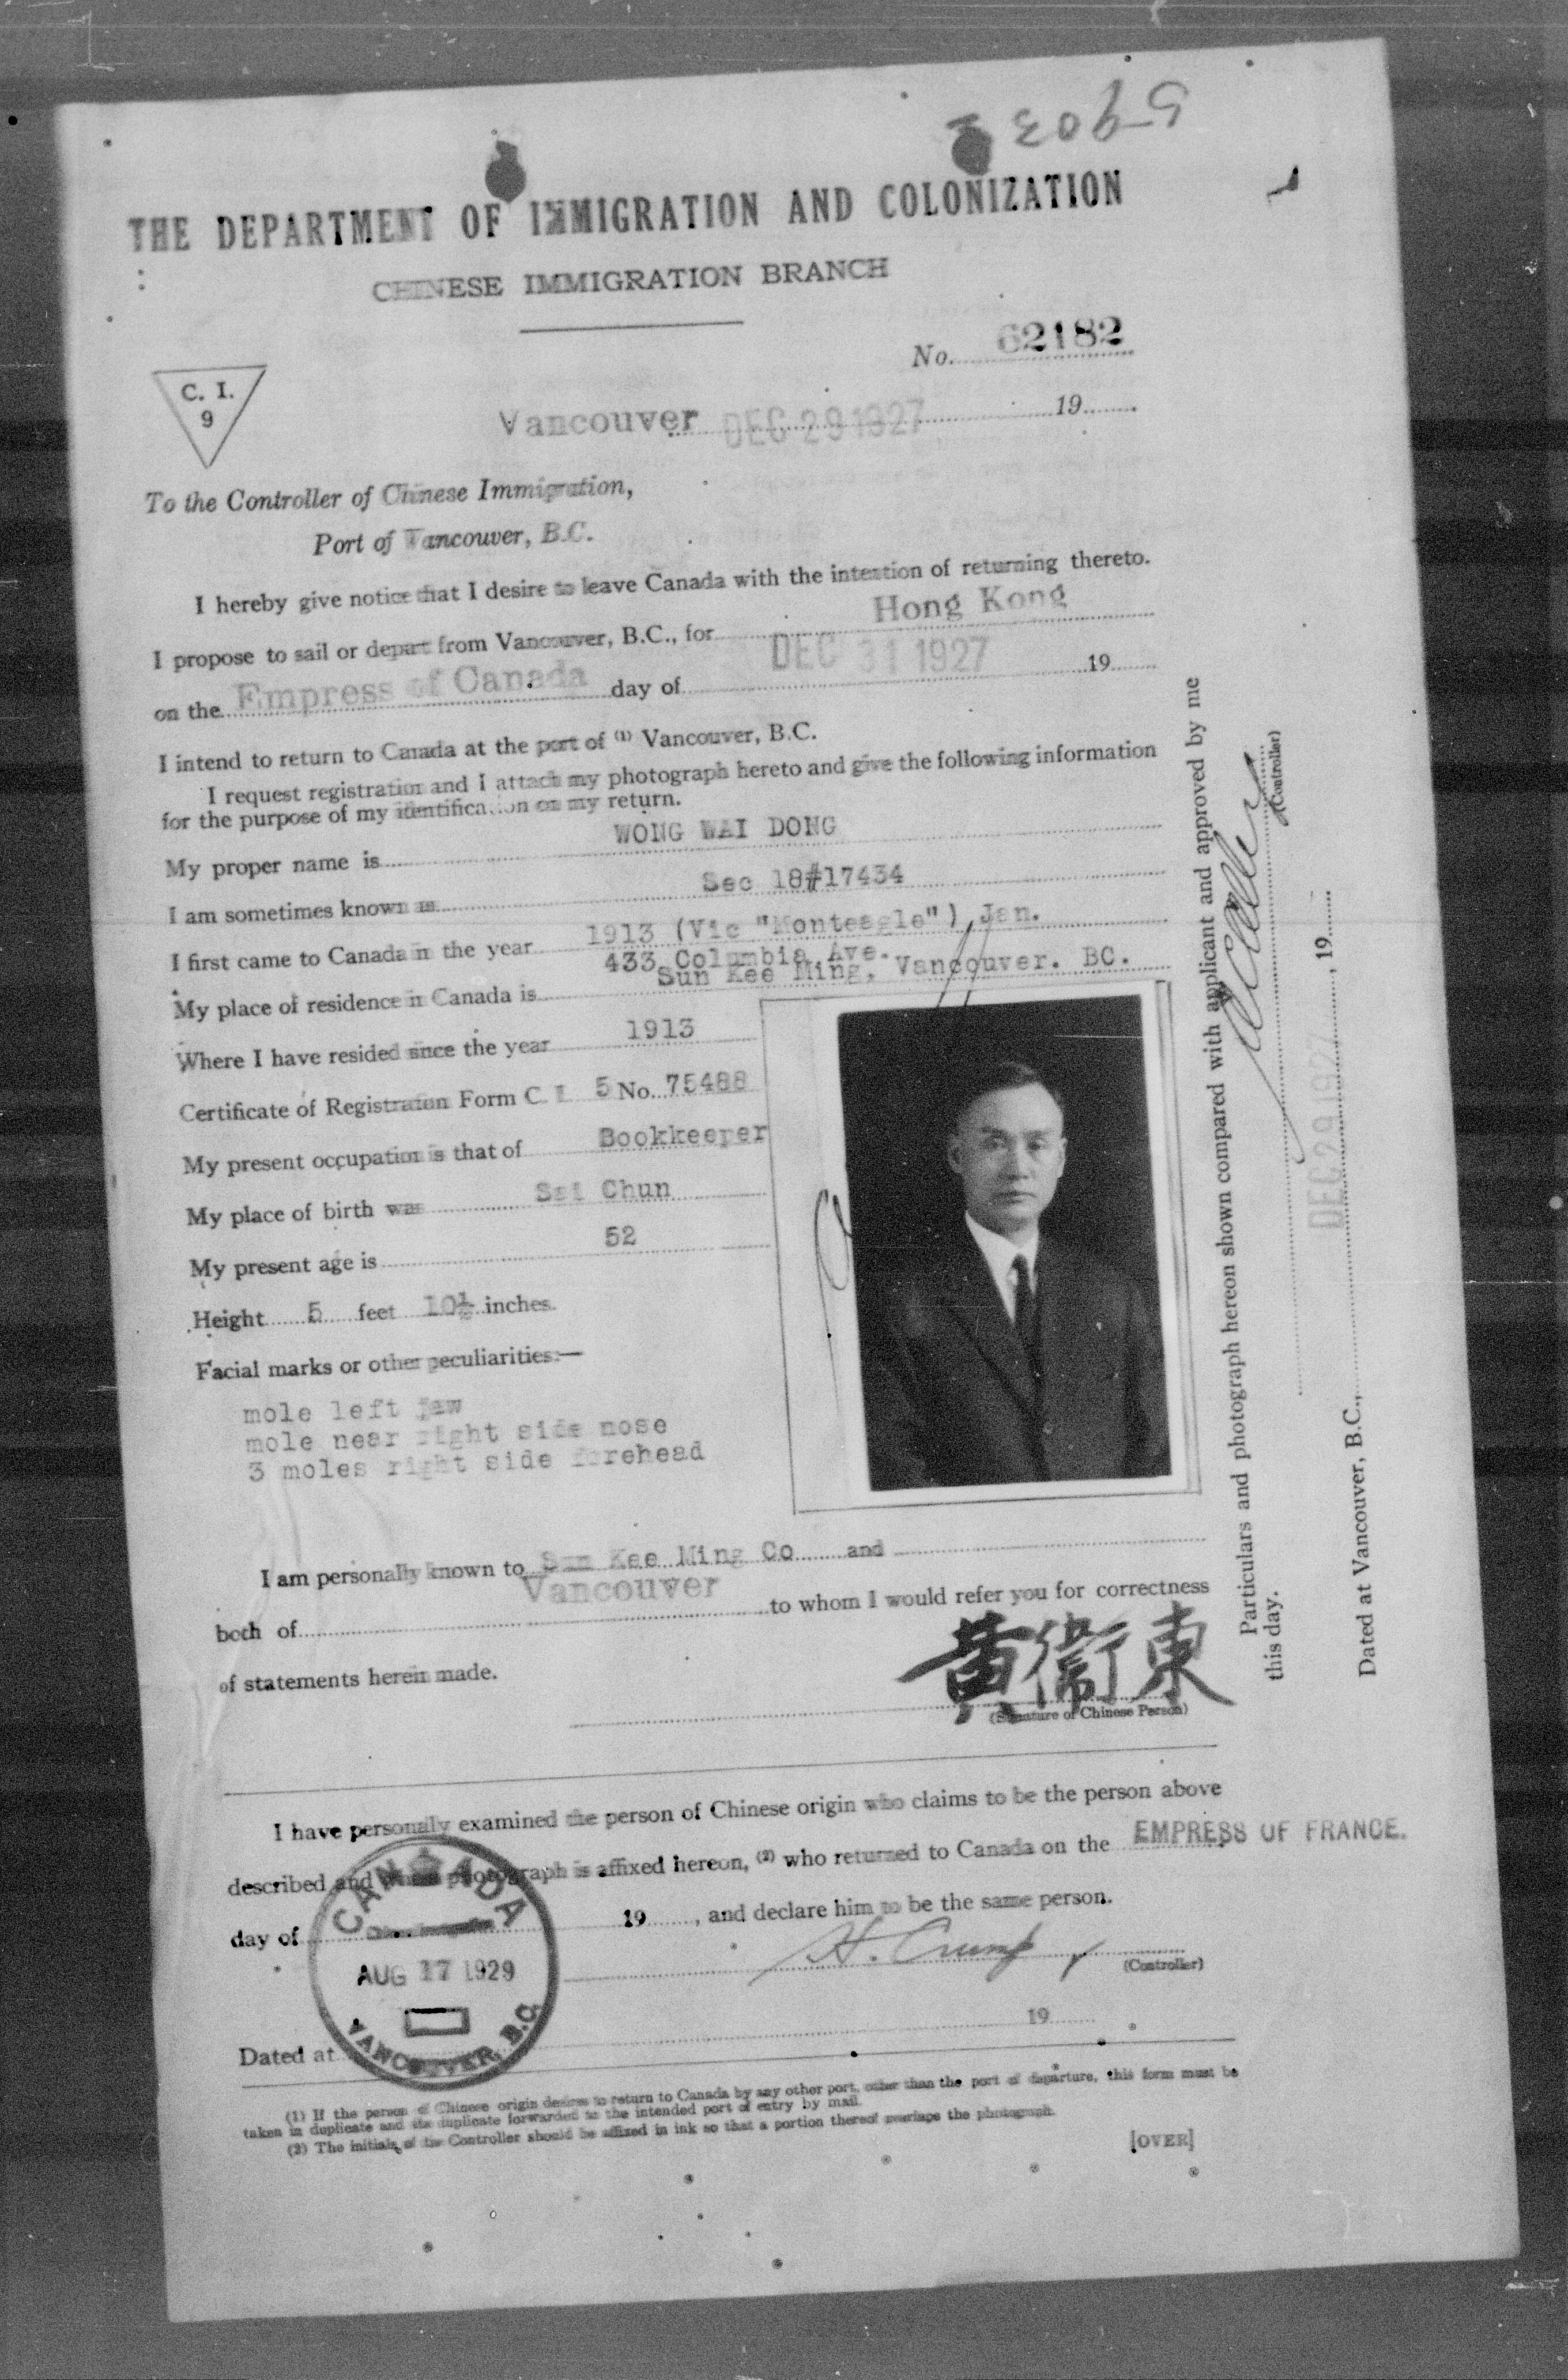 5903
THE DEPARTMENT OF IMMIGRATION AND COLONIZATION
CHINESE IMMIGRATION BRANCH
No. 62182
C. I.
9
Vancouver DEC 29 1927 19
To the Controller of Chinese Immigration,
Port of Vancouver, B.C.
I hereby give notice that I desire to leave Canada with the intention of returning thereto.
I propose to sail or depart from Vancouver, B.C., for Hong Kong
on the Empress of Canada day of DEC 31 1927 19
I intend to return to Canada at the port of (1) Vancouver, B.C.
I request registration and I attach my photograph hereto and give the following information
for the purpose of my identification on my return.
My proper name is WONG WAI DONG
I am sometimes known as Sec 18#17434
I first came to Canada in the year 1913 (Vic "Monteagle") Jan.
433 Columbia Ave.
My place of residence in Canada is Sun Kee Ming, Vancouver. BC.
Where I have resided since the year 1913
Certificate of Registration Form C. I. 5 No. 75488
My present occupation is that of Bookkeeper
My place of birth was Sai Chun
My present age is 52
Height 5 feet 10½ inches.
Facial marks or other peculiarities:—
mole left jaw
mole near right side nose
3 moles right side forehead
I am personally known to Sun Kee Ming Co and
both of Vancouver to whom I would refer you for correctness
of statements herein made.
黃衞東
(Signature of Chinese Person)
Particulars and photograph hereon shown compared with applicant and approved by me
this day.
(Controller)
DEC 29 1927
Dated at Vancouver, B.C., , 19
I have personally examined the person of Chinese origin who claims to be the person above
described and whose photograph is affixed hereon, (2) who returned to Canada on the EMPRESS OF FRANCE.
day of 19 , and declare him to be the same person.
H. Crump
(Controller)
CANADA
AUG 17 1929
VANCOUVER, B.C.
Dated at 19
(1) If the person of Chinese origin desires to return to Canada by any other port, other than the port of departure, this form must be
taken in duplicate and the duplicate forwarded to the intended port of entry by mail.
(2) The initials of the Controller should be affixed in ink so that a portion thereof overlaps the photograph.
[OVER]